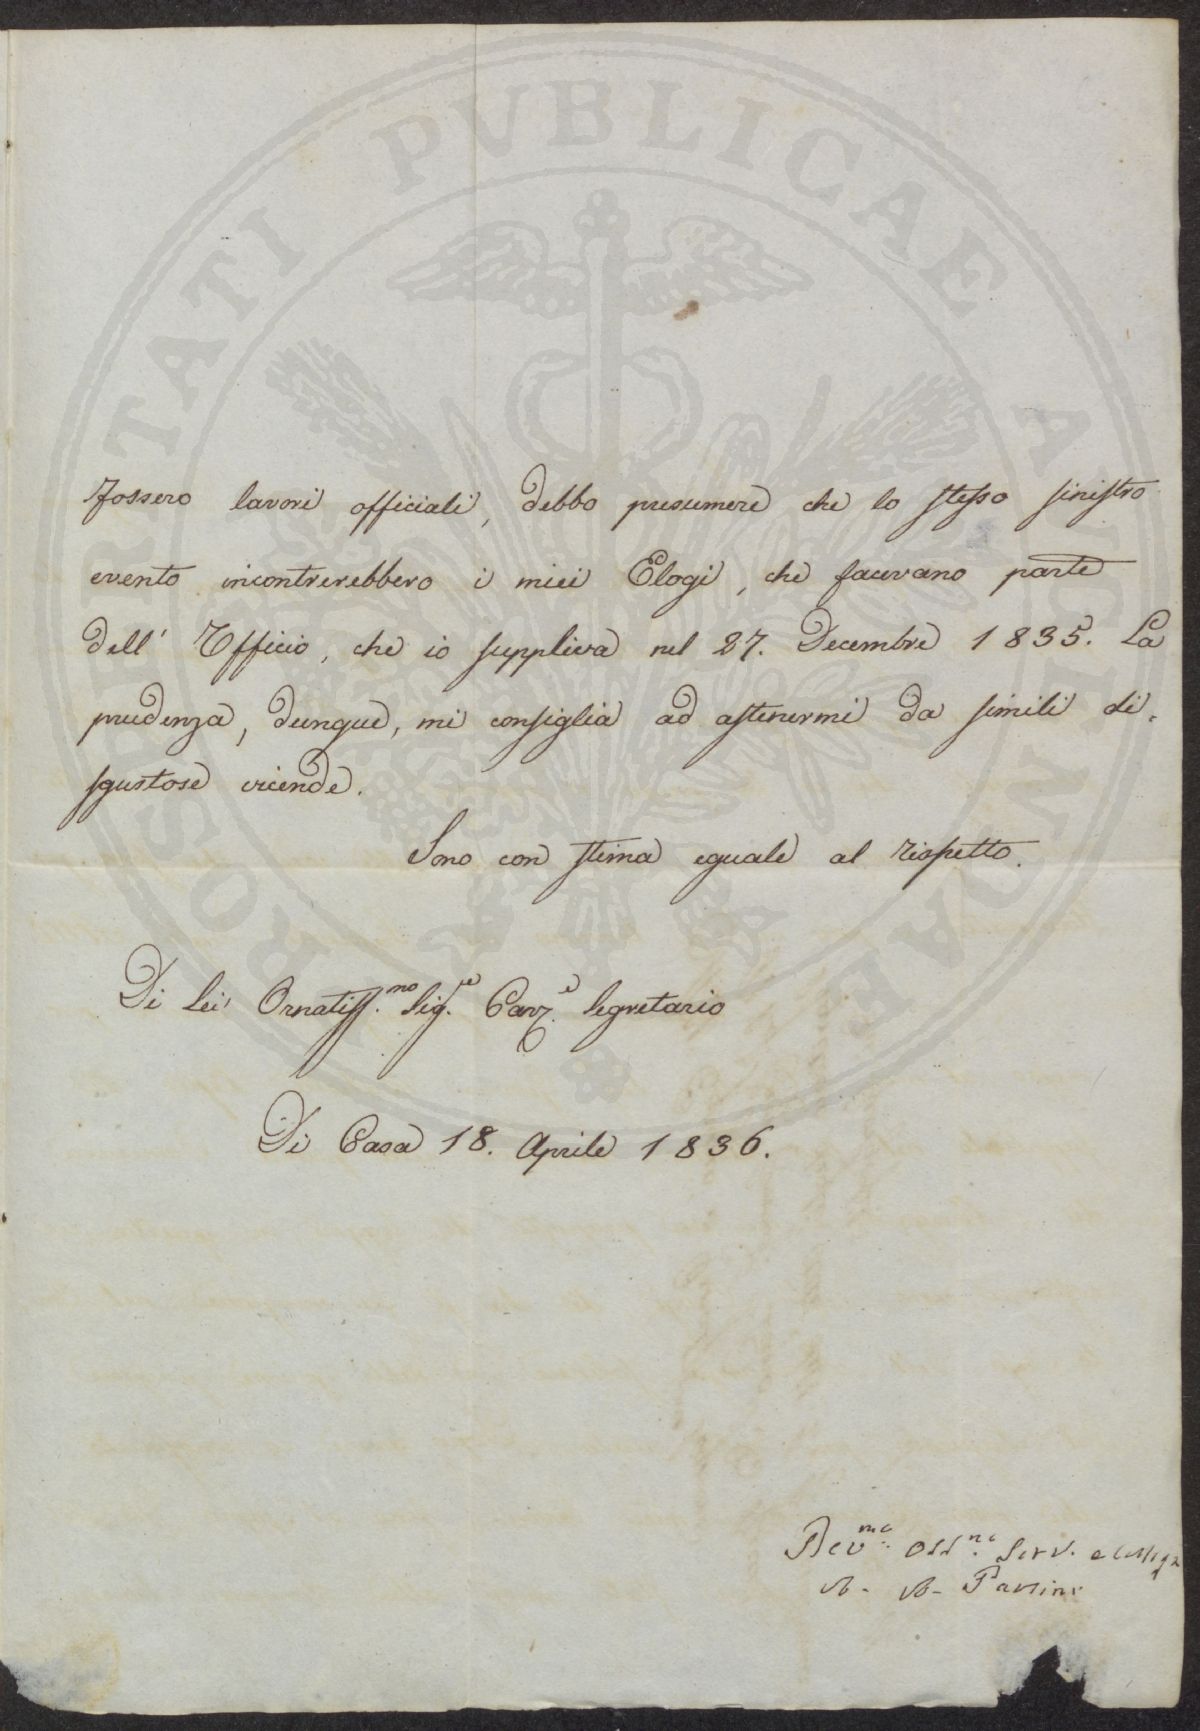 PROSPERITATI PUBLICAE AUGENDAE
fossero lavori officiali, debbo presumere che lo stesso sinistro
evento incontrerebbero i miei Elogi, che facevano parte
dell' Officio, che io suppliva nel 27. Decembre 1835. La
prudenza, dunque, mi consiglia ad astenermi da simili di-
sgustose vicende.
Sono con stima eguale al rispetto.
Di Lei Ornatiss.mo Sig.re Cav.e Segretario
Di Casa 18. Aprile 1836.
Dev.mo Oss.mo Serv. e Collega